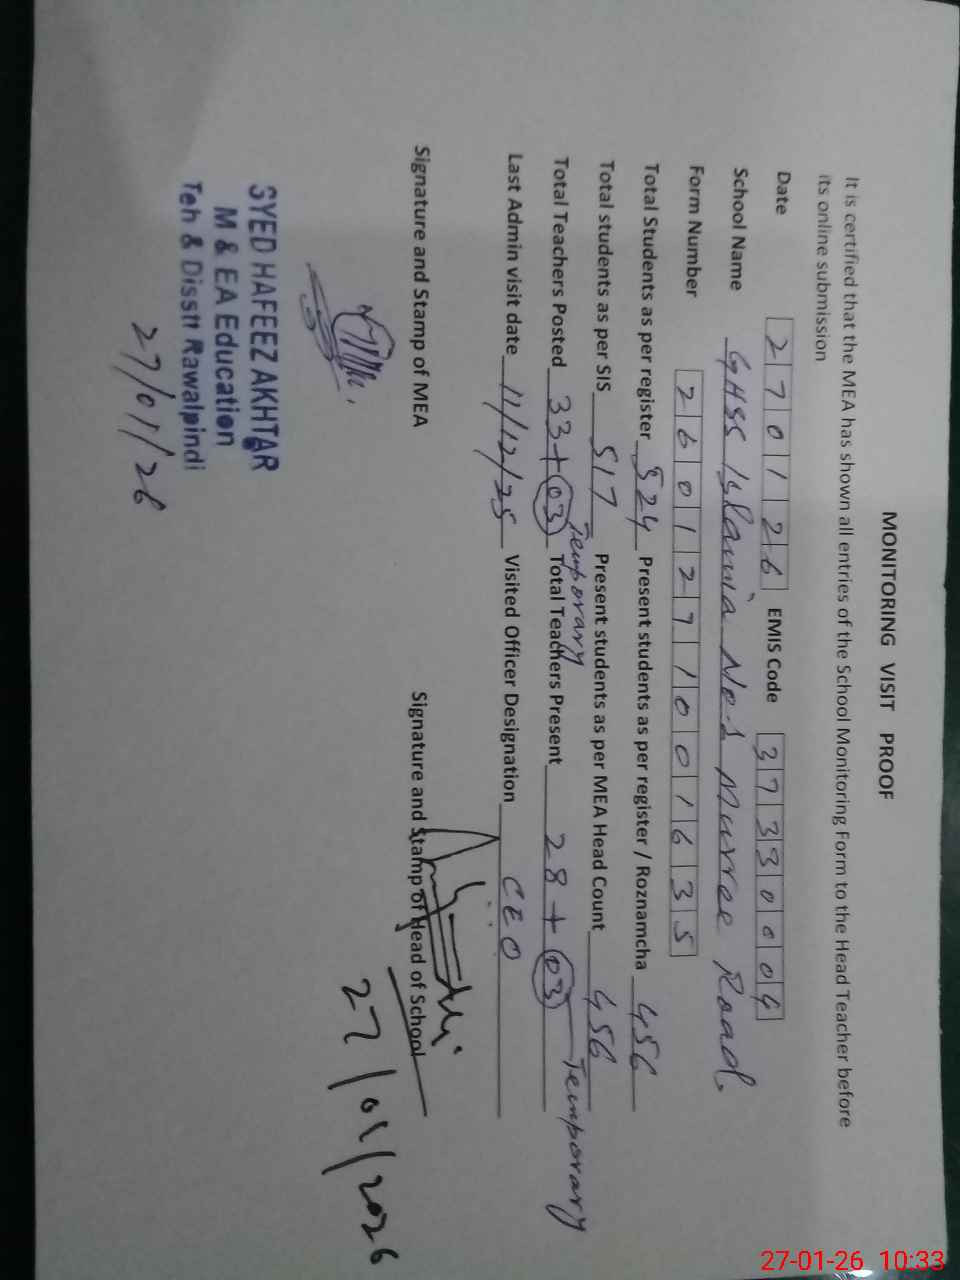 MONITORING VISIT PROOF
It is certified that the MEA has shown all entries of the School Monitoring Form to the Head Teacher before
its online submission
Date 270126 EMIS Code 37330004
School Name GHSS Islamia No 1 Murree Road.
Form Number 2601271001635
Total Students as per register 524 Present students as per register / Roznamcha 456
Total students as per SIS 517 Present students as per MEA Head Count 456
Total Teachers Posted 33+03 Temporary Total Teachers Present 28+03 Temporary
Last Admin visit date 11/12/25 Visited Officer Designation CEO
Signature and Stamp of MEA Signature and Stamp of Head of School
27/01/2026
SYED HAFEEZ AKHTAR
M & EA Education
Teh & Disstt Rawalpindi
27/01/26
27-01-26 10:33